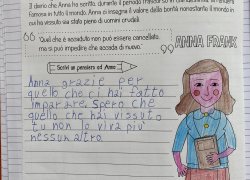 Il diario che Anna ha scritto, durante il periodo trascorso in
famosa in tutto il mondo. Anna ci insegna il valore della bontà nonostante il mondo in
cui ha vissuto sia stato pieno di uomini crudeli.
66 Quel che è accaduto non può essere cancellato,
ma si può impedire che accada di nuovo. 99
ANNA FRANK
Scrivi un pensiero ad Anna
Anna grazie per
quello che ci hai fatto
imparare. Spero che
quello che hai vissuto
tu non lo viva più
nessun altro.